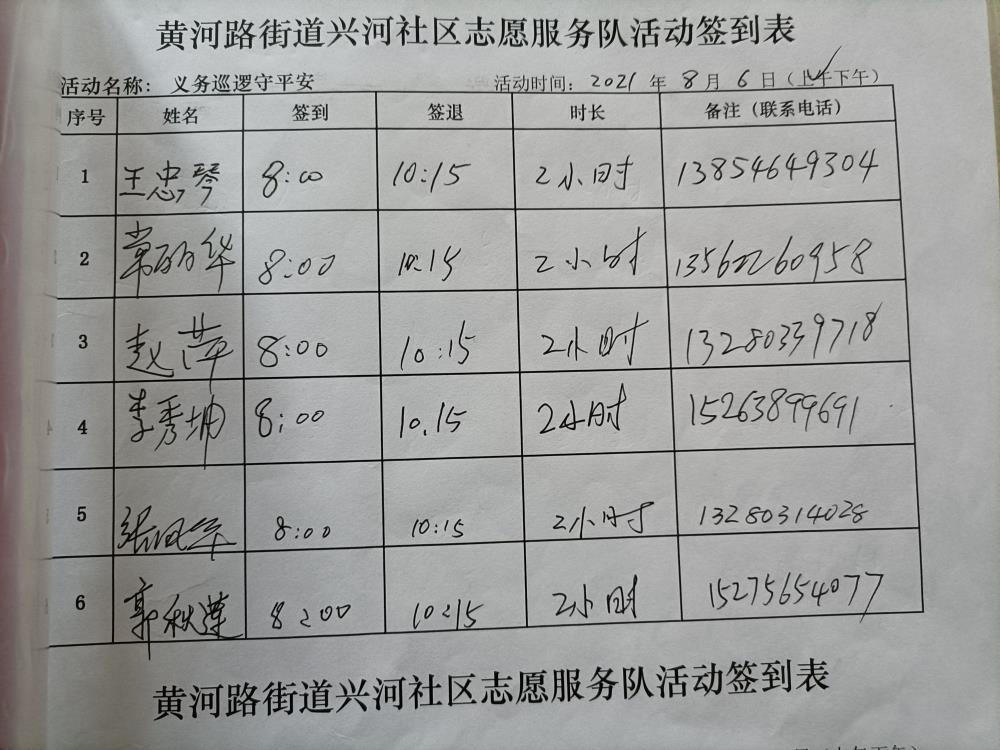 黄河路街道兴河社区志愿服务队活动签到表
活动名称: 义务巡逻守平安 活动时间: 2021 年 8 月 6 日(上午下午)
序号 姓名 签到 签退 时长 备注(联系电话)
1 王忠琴 8:00 10:15 2小时 13854649304
2 常丽华 8:00 10:15 2小时 13562260958
3 赵萍 8:00 10:15 2小时 13280339718
4 李秀坤 8:00 10.15 2小时 15263899691
5 张 8:00 10:15 2小时 13280314028
6 郭秋莲 8:00 10:15 2小时 15275654077
黄河路街道兴河社区志愿服务队活动签到表